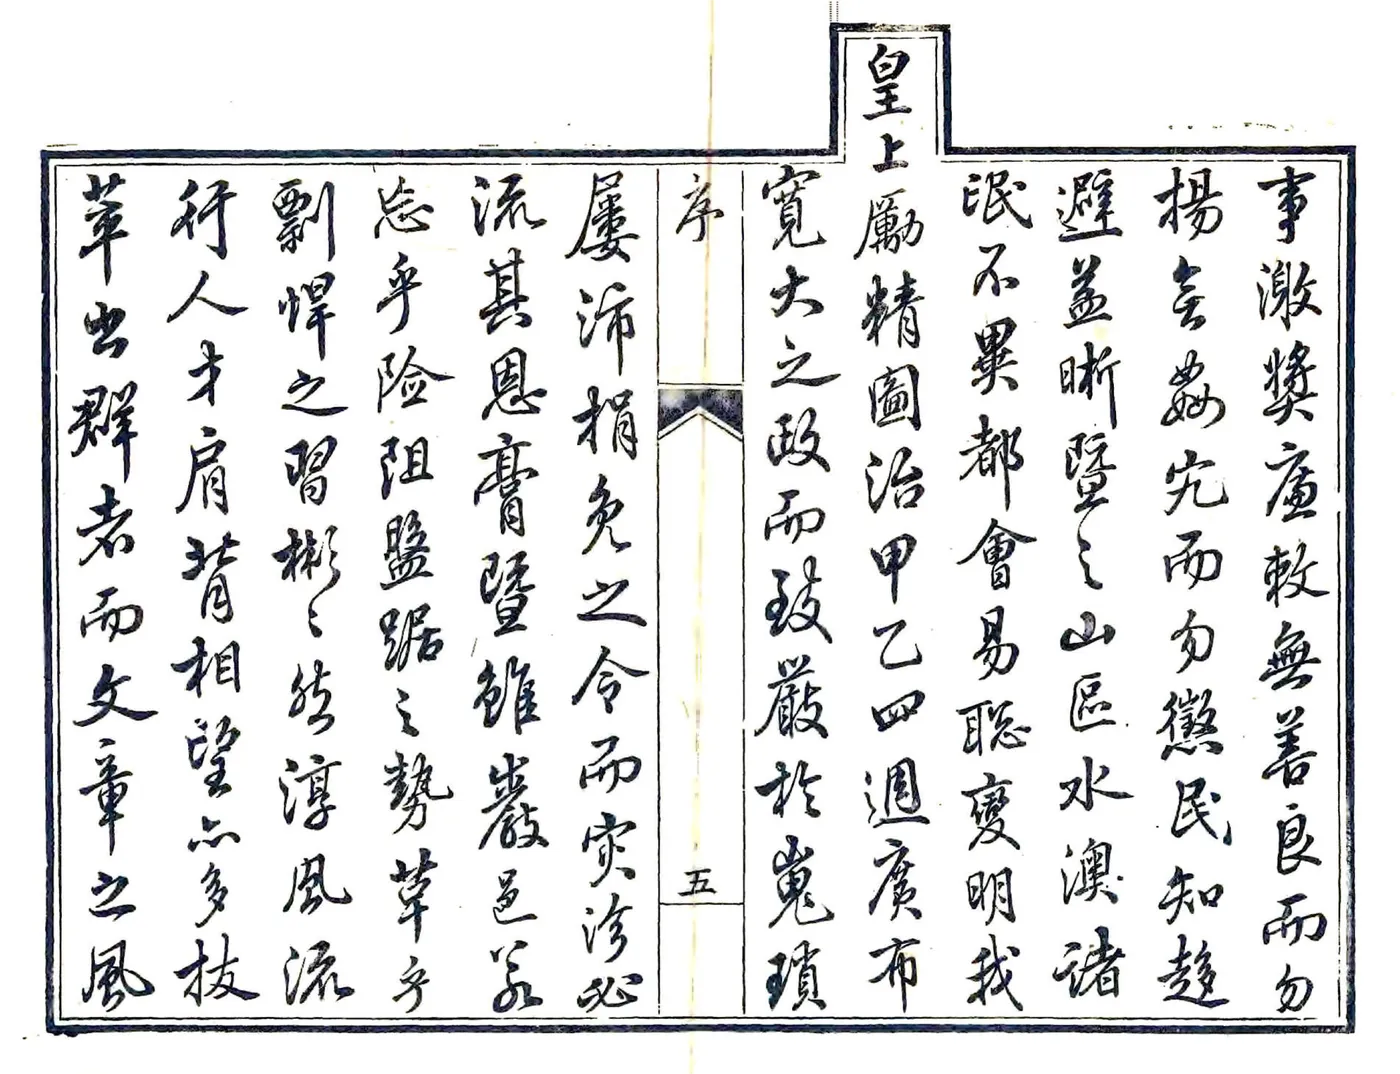 事激獎廉敕無善良而勿
揚無姦宄而勿懲民知趨
避益晰暨之山區水澳諸
氓不異都會易聰變明我
皇上勵精圖治甲乙四週廣布
寬大之政而致嚴於嵬瑣
序
五
屢沛捐免之令而灾沴必
流其恩膏暨雖巖邑若
忘乎险阻盤踞之勢革乎
剽悍之習彬〻然淳風流
行人才肩背相望亦多拔
萃出群者而文章之風